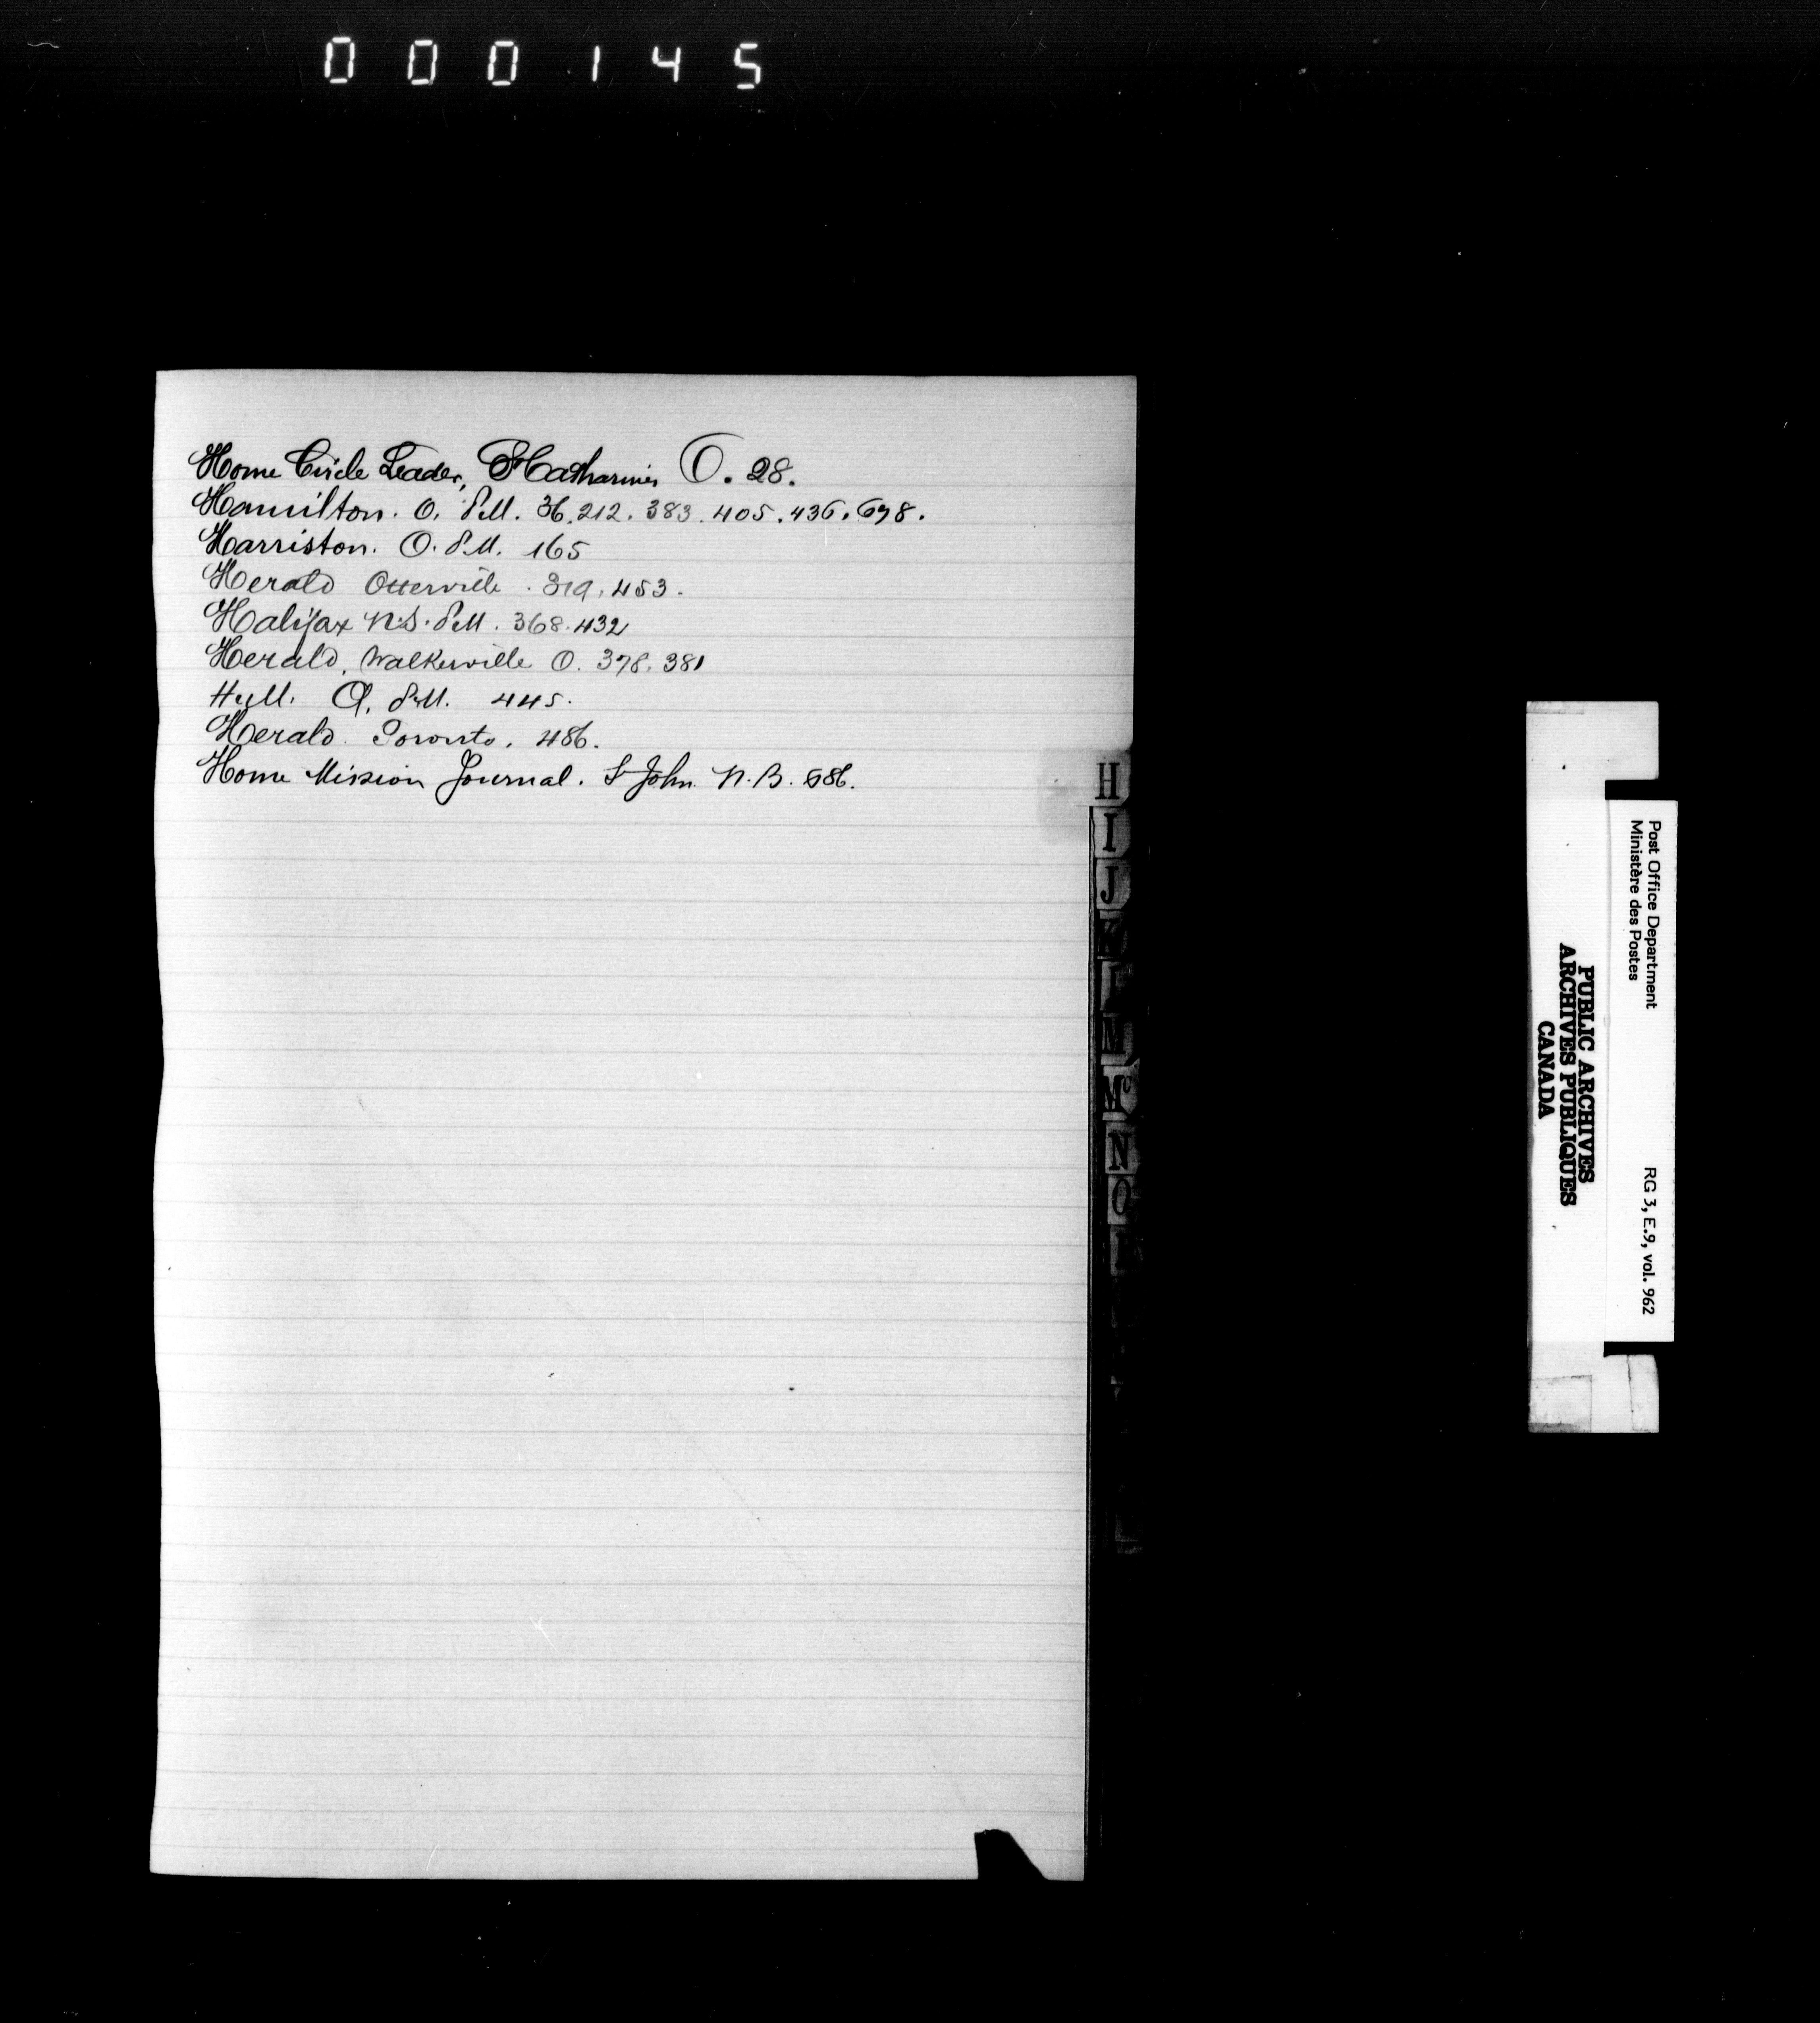 000145
Home Circle Leader, St Catharines O. 28.
Hamilton. O. P.M. 36. 212. 383. 405. 436. 698.
Harriston. O. P.M. 165
Herald Otterville. 319. 453.
Halifax N.S. P.M. 368. 432
Herald, Walkerville O. 378. 381
Hull. Q. P.M. 445.
Herald. Toronto. 486.
Home Mission Journal. St John. N.B. 686.
H
I
J
M
Mc
N
O
Post Office Department
Ministère des Postes
RG 3, E.9, vol. 962
PUBLIC ARCHIVES
ARCHIVES PUBLIQUES
CANADA